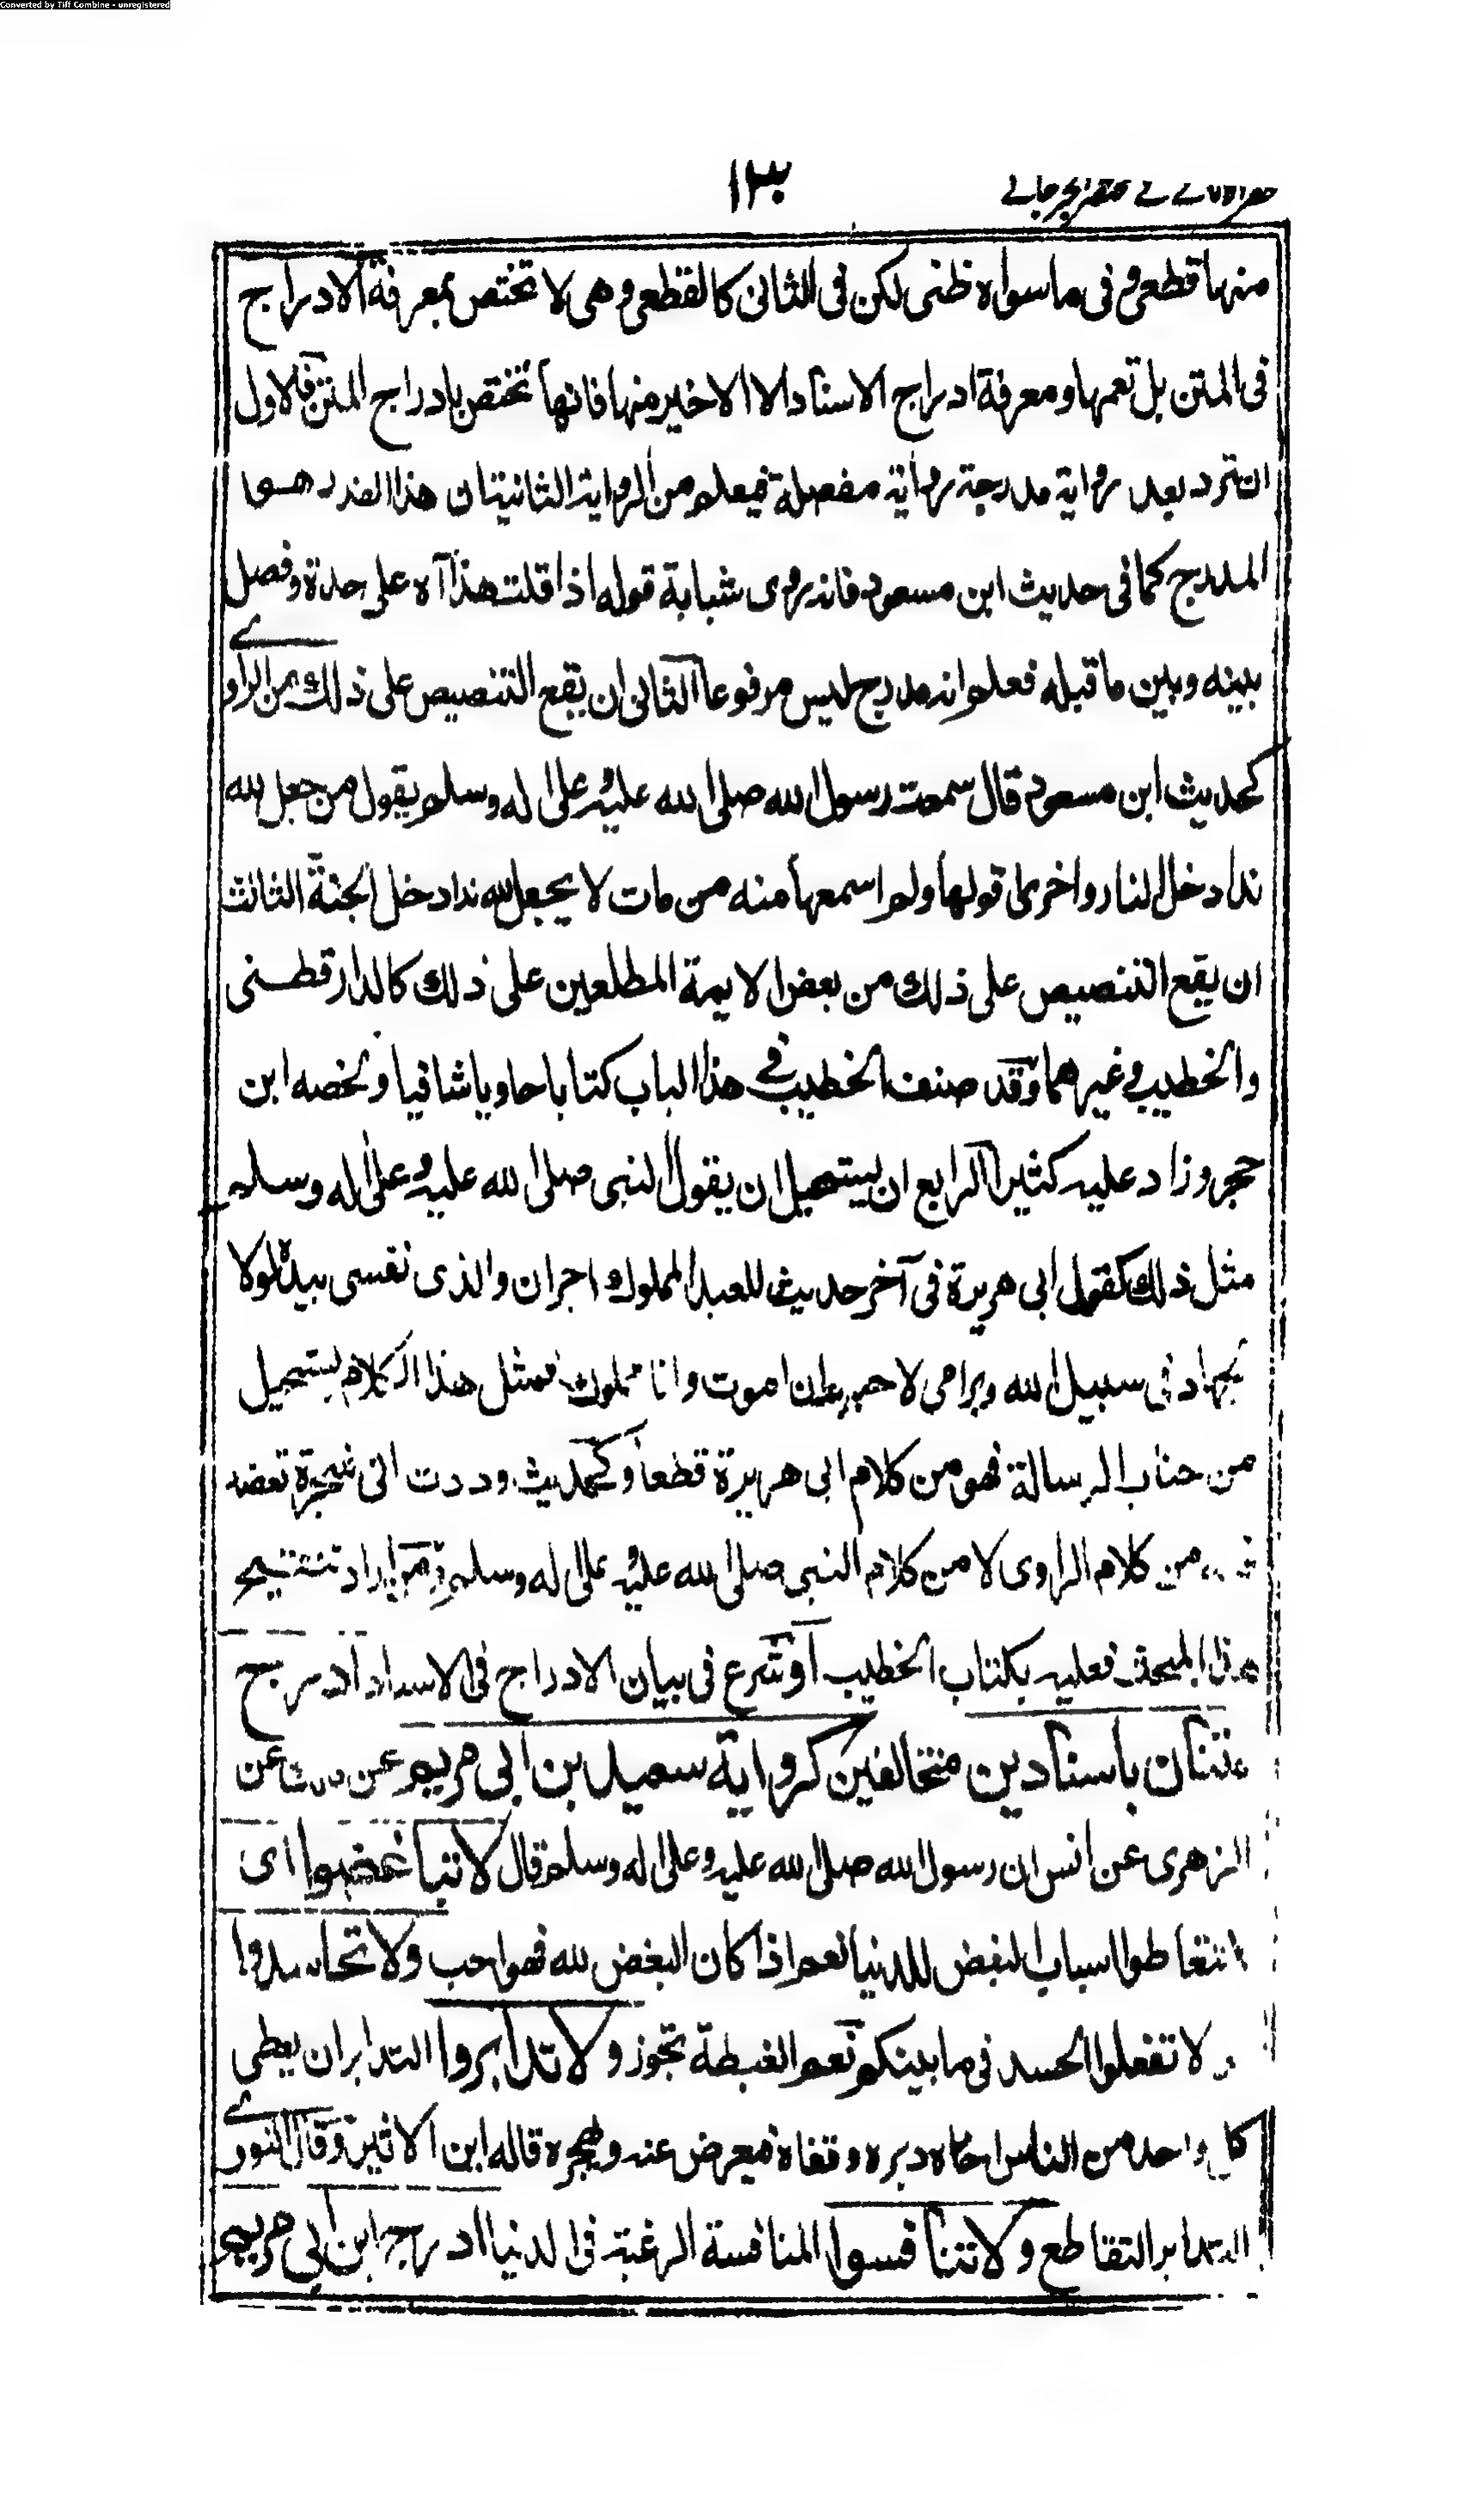 Converted by Tiff Combine - unregistered
١٣٠
منها قطعي وفى ما سواه ظنى لكن فى الثانى كالقطعى وهى لا تختص بمعرفة الادراج
فى المتن بل تعمها ومعرفة ادراج الاسناد الا الاخير منها فانها تختص بادراج المتن فالاول
ان ترد بعد رواية مدرجة رواية مفصلة فيعلم من الرواية الثانية ان هذا القدر هو
المدرج كما فى حديث ابن مسعود فانه روى شبابة قوله اذا قلت هذا آه على حدة وفصل
بينه وبين ما قبله فعلم انه مدرج ليس مرفوعا الثانى ان يقع التنصيص على ذلك من الراوے
كحديث ابن مسعود قال سمعت رسول الله صلى الله عليه وعلى اله وسلم يقول من جعل لله
ندا دخل النار واخرى قولها ولم اسمعها منه من مات لا يجعل لله ندا دخل الجنة الثالث
ان يقع التنصيص على ذلك من بعض الايمة المطلعين على ذلك كالدارقطنى
والخطيب وغيرهما وقد صنف الخطيب فے هذا الباب كتابا حاويا شافيا ولخصه ابن
حجر وزاد عليه كثيرا الرابع ان يستحيل ان يقول النبى صلى الله عليه وعلى اله وسلم
مثل ذلك كقول ابى هريرة فى آخر حديث للعبد المملوك اجران والذى نفسى بيده لولا
الجهاد فى سبيل الله وبر امى لاحببت ان اموت وانا مملوك فمثل هذا الكلام يستحيل
من جناب الرسالة فهو من كلام ابى هريرة قطعا وكحديث وددت انى شجرة تعضد
من كلام الراوى لا من كلام النبى صلى الله عليه وعلى اله وسلم ومن اراد تنقيح
هذا المبحث فعليه بكتاب الخطيب او شرع فى بيان الادراج فى الاسناد ادرج
متنان باسنادين متخالفين كرواية سعيد بن ابى مريم عن مالك عن
الزهرى عن انس ان رسول الله صلى الله عليه وعلى اله وسلم قال لا تباغضوا اى
لا تتعاطوا اسباب البغض للدنيا نعم اذا كان البغض لله فهو احب ولا تحاسدوا
لا تفعلوا الحسد فى ما بينكم نعم الغبطة تجوز ولا تدابروا التدابر ان يعطى
كل واحد من الناس اخاه دبره وقفاه فيعرض عنه ويهجره قاله ابن الاثير وقال النورے
التدابر التقاطع ولا تنافسوا المنافسة الرغبة فى الدنيا ادرج ابن ابى مريم